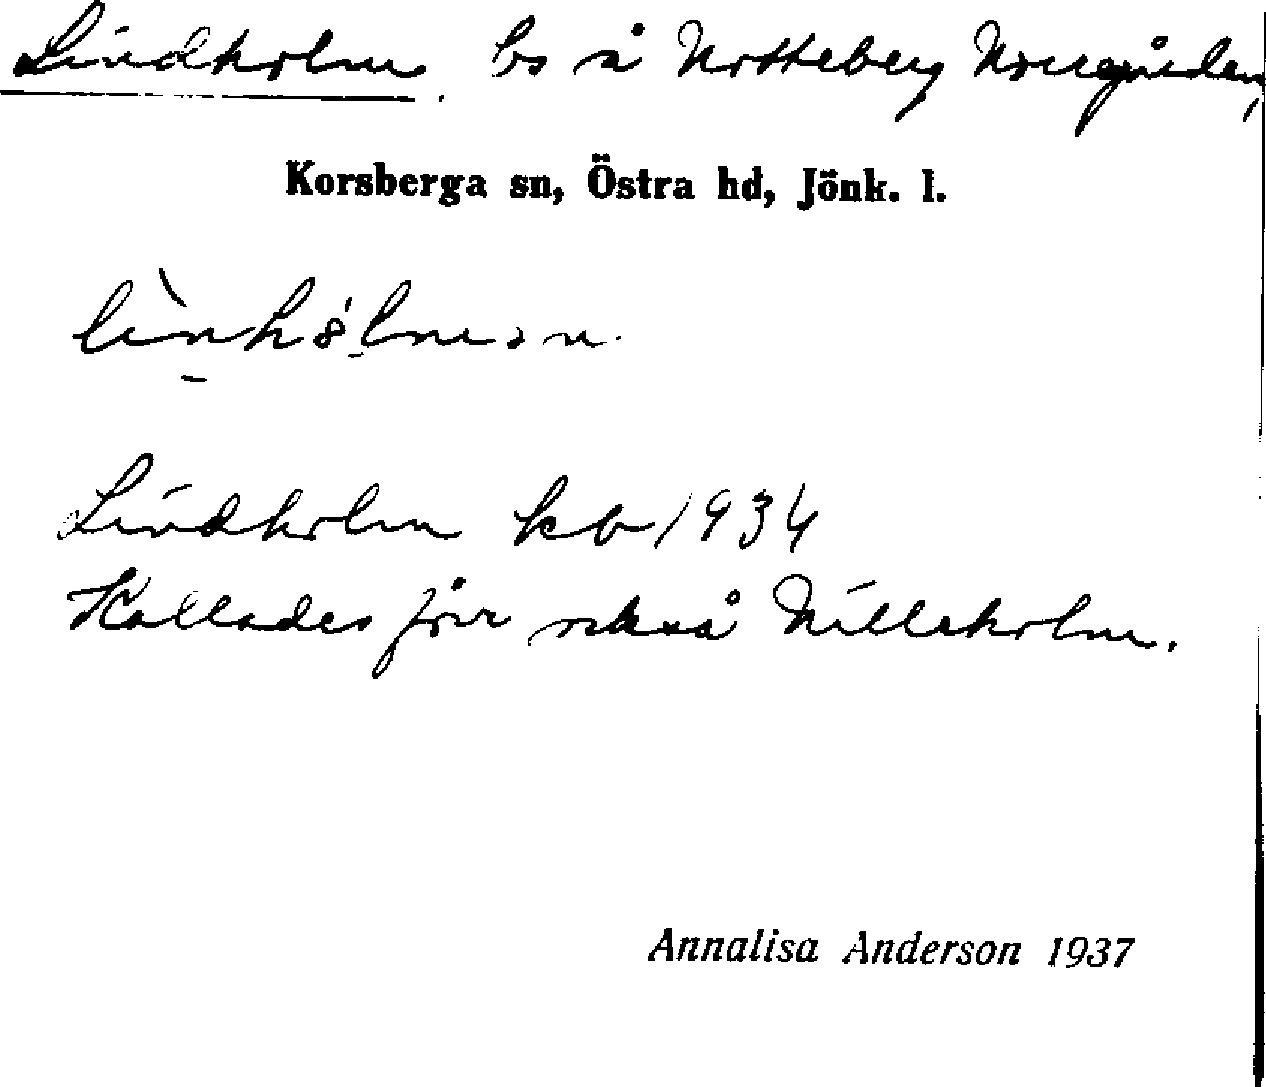 Lindholm. bs å Notteberg Norregården,
Korsberga sn, Östra hd, Jönk. l.
Lindholm kb 1934
Kallades förr också Nilleholm.
Annalisa Anderson 1937